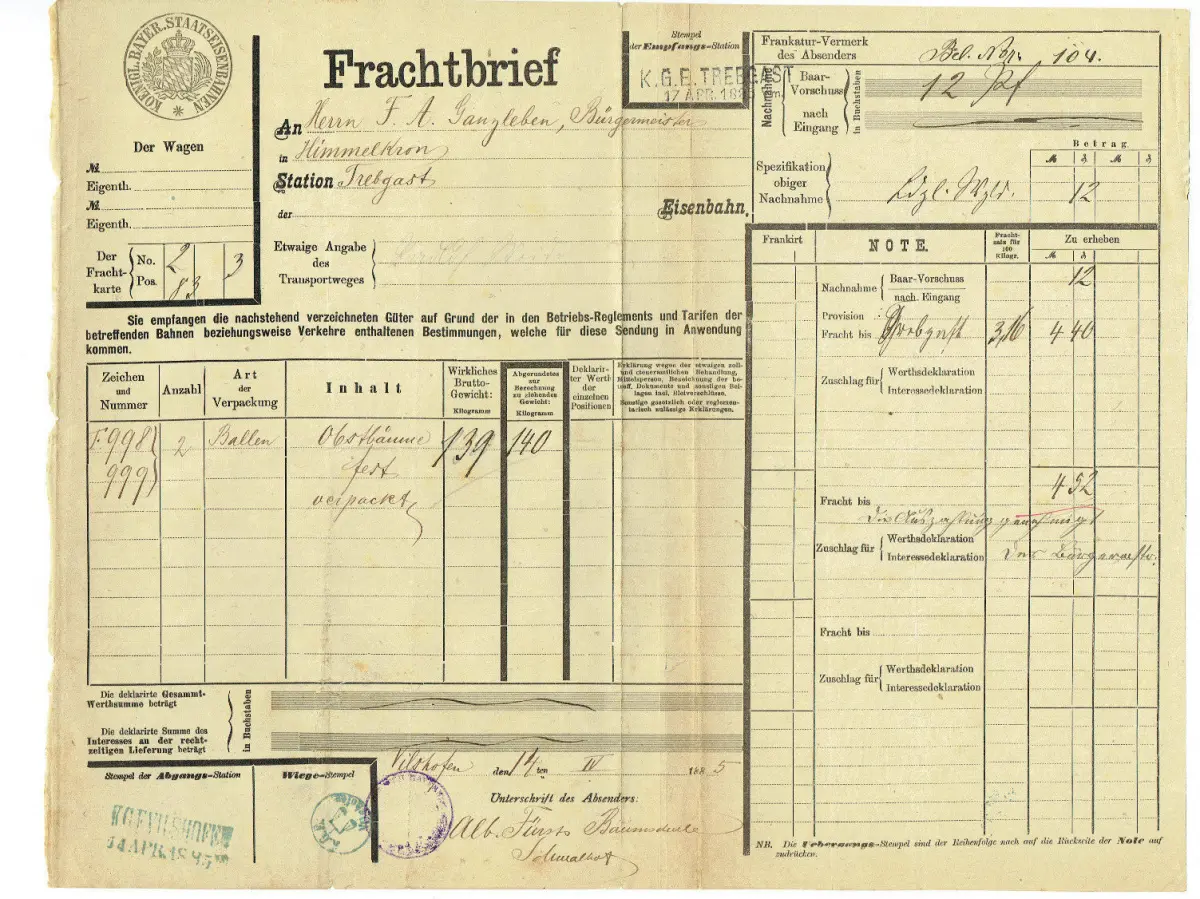 KOENIGL. BAYER. STAATSEISENBAHNEN
Der Wagen
№
Eigenth.
№
Eigenth.
Der Frachtkarte
No. 2 3
Pos. 83
Frachtbrief
An Herrn F. A. Ganzleben, Bürgermeister
in Himmelkron
Station Trebgast
der Eisenbahn.
Etwaige Angabe
des
Transportweges
Stempel
der Empfangs-Station
K.G.E. TREBGAST
17 APR. 18
Frankatur-Vermerk
des Absenders
Bel. Nr. 104.
Nachnahme
Baar-
Vorschuss
nach
Eingang
in Buchstaben
12 Pf
Betrag
M ₰ M ₰
Spezifikation
obiger
Nachnahme
12
Sie empfangen die nachstehend verzeichneten Güter auf Grund der in den Betriebs-Reglements und Tarifen der
betreffenden Bahnen beziehungsweise Verkehre enthaltenen Bestimmungen, welche für diese Sendung in Anwendung
kommen.
Zeichen
und
Nummer
Anzahl
Art
der
Verpackung
Inhalt
Wirkliches
Brutto-
Gewicht:
Kilogramm
Abgerundetes
zur
Berechnung
zu ziehendes
Gewicht:
Kilogramm
Deklarir-
ter Werth
der
einzelnen
Positionen
Erklärung wegen der etwaigen zoll-
und steueramtlichen Behandlung,
Mittelsperson, Bezeichnung der be-
treff. Dokumente und sonstigen Bei-
lagen incl. Bleiverschlüsse.
Sonstige gesetzlich oder reglemen-
tarisch zulässige Erklärungen.
F. 998 2 Ballen Obstbäume 139 140
999 fest
verpackt
Frankirt
NOTE.
Fracht-
satz für
100
Kilogr.
Zu erheben
M ₰
Nachnahme
Baar-Vorschuss
nach. Eingang
12
Provision :
Fracht bis Trebgast 3,16 4 40
Zuschlag für
Werthsdeklaration
Interessedeklaration
4 52
Fracht bis
Die Auszahlung genehmigt
Zuschlag für
Werthsdeklaration
Interessedeklaration
Der Bürgermstr.
Fracht bis
Zuschlag für
Werthsdeklaration
Interessedeklaration
Die deklarirte Gesammt-
Werthsumme beträgt
Die deklarirte Summe des
Interesses an der recht-
zeitigen Lieferung beträgt
in Buchstaben
Stempel der Abgangs-Station
K.G.E. VILSHOFEN
14 APR. 1885
Wiege-Stempel
Vilshofen den 14 ten IV 1885
Unterschrift des Absenders:
Alb. Fürsts Baumschule
Schmalhof
NB. Die Uebergangs-Stempel sind der Reihenfolge nach auf die Rückseite der Note auf
zudrücken.